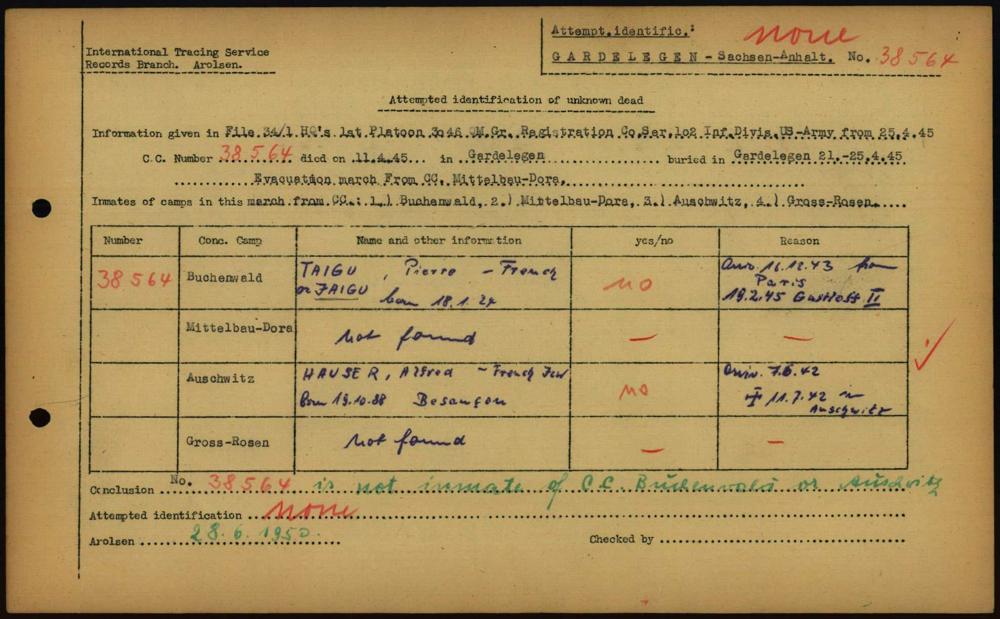 International Tracing Service
Records Branch. Arolsen.
Attempt.identific.: none
GARDELEGEN - Sachsen-Anhalt. No. 38564
Attempted identification of unknown dead
Information given in File 34/1 HQ's 1st Platoon 3046 QM.Gr. Registration Co.Ser.102 Inf.Divis.US-Army from 25.4.45
C.C. Number 38564 died on 11.4.45 in Gardelegen buried in Gardelegen 21.-25.4.45
Evacuation march From CC. Mittelbau-Dora.
Inmates of camps in this march from CC.: 1.) Buchenwald, 2.) Mittelbau-Dora, 3.) Auschwitz, 4.) Gross-Rosen.
Number Conc. Camp Name and other information yes/no Reason
38564 Buchenwald TAIGU, Pierre - French no Arriv. 16.12.43 from
or FAIGU born 18.1.24 Paris
19.2.45 Gustloff II
Mittelbau-Dora not found — —
Auschwitz HAUSER, Alfred - French Jew no Arriv. 7.6.42
born 19.10.88 Besançon † 11.7.42 in
Auschwitz
Gross-Rosen not found — —
Conclusion No. 38564 is not inmate of C.C. Buchenwald or Auschwitz
Attempted identification none
Arolsen 28.6.1950. Checked by